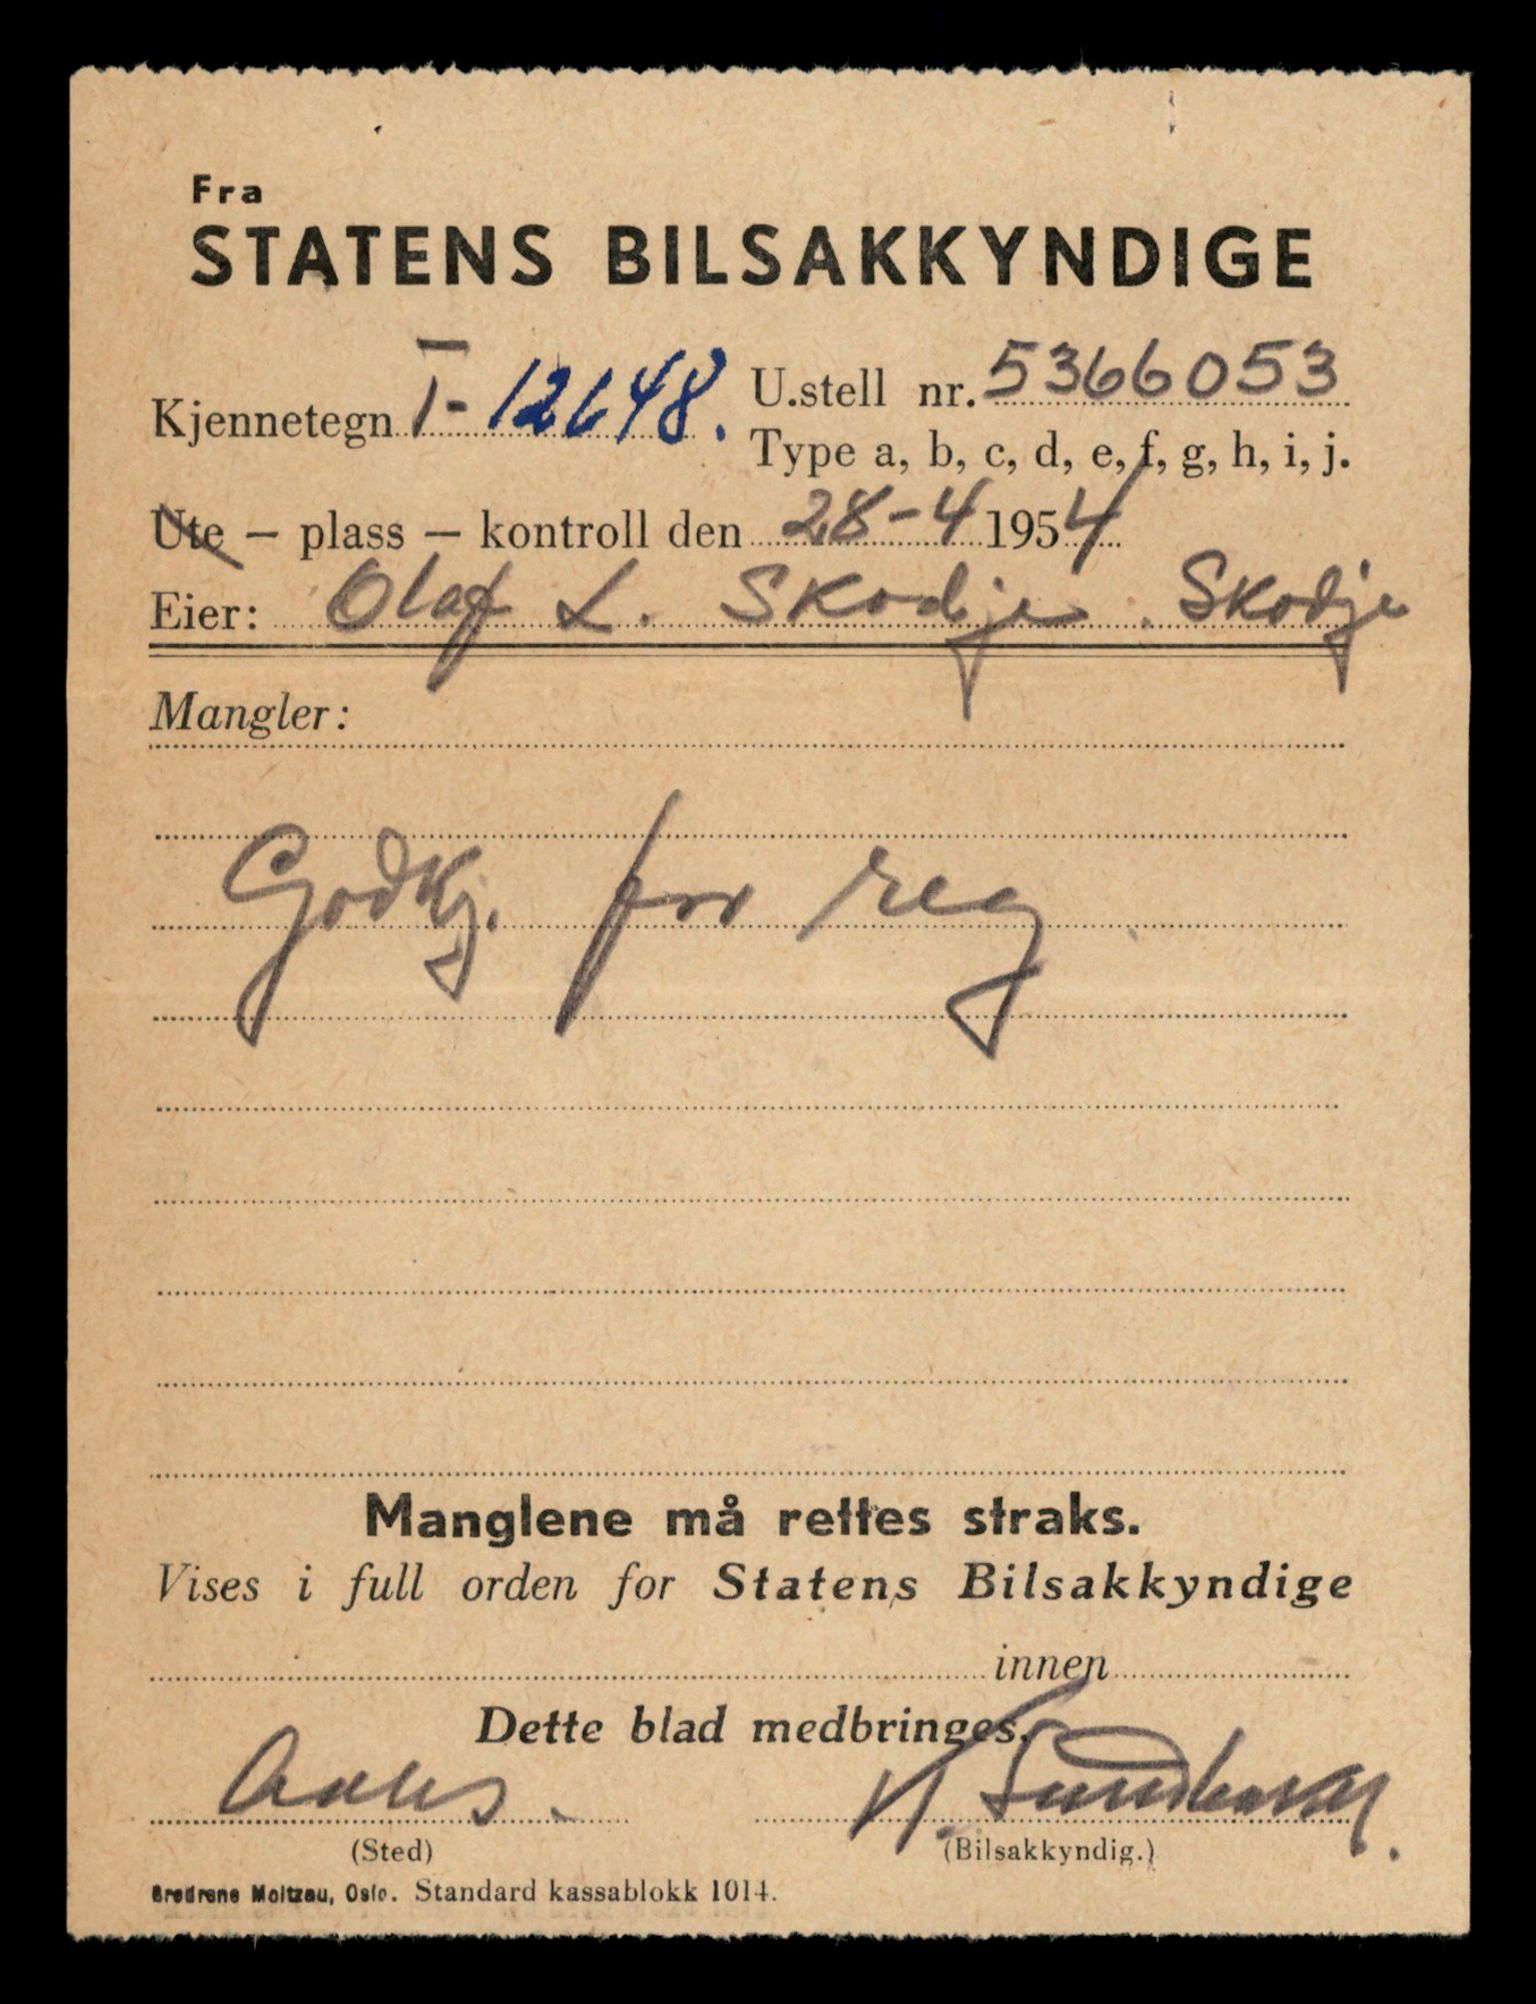 Fra
STATENS BILSAKKYNDIGE
Kjennetegn T-12648. U.stell nr. 5366053
Type a, b, c, d, e, f, g, h, i, j.
Ute – plass – kontroll den 28-4 1954
Eier: Olaf L. Skodje. Skodje
Mangler:
Godkj. for reg
Manglene må rettes straks.
Vises i full orden for Statens Bilsakkyndige
innen
Dette blad medbringes.
(Sted) (Bilsakkyndig.)
Brødrene Moltzau, Oslo. Standard kassablokk 1014.